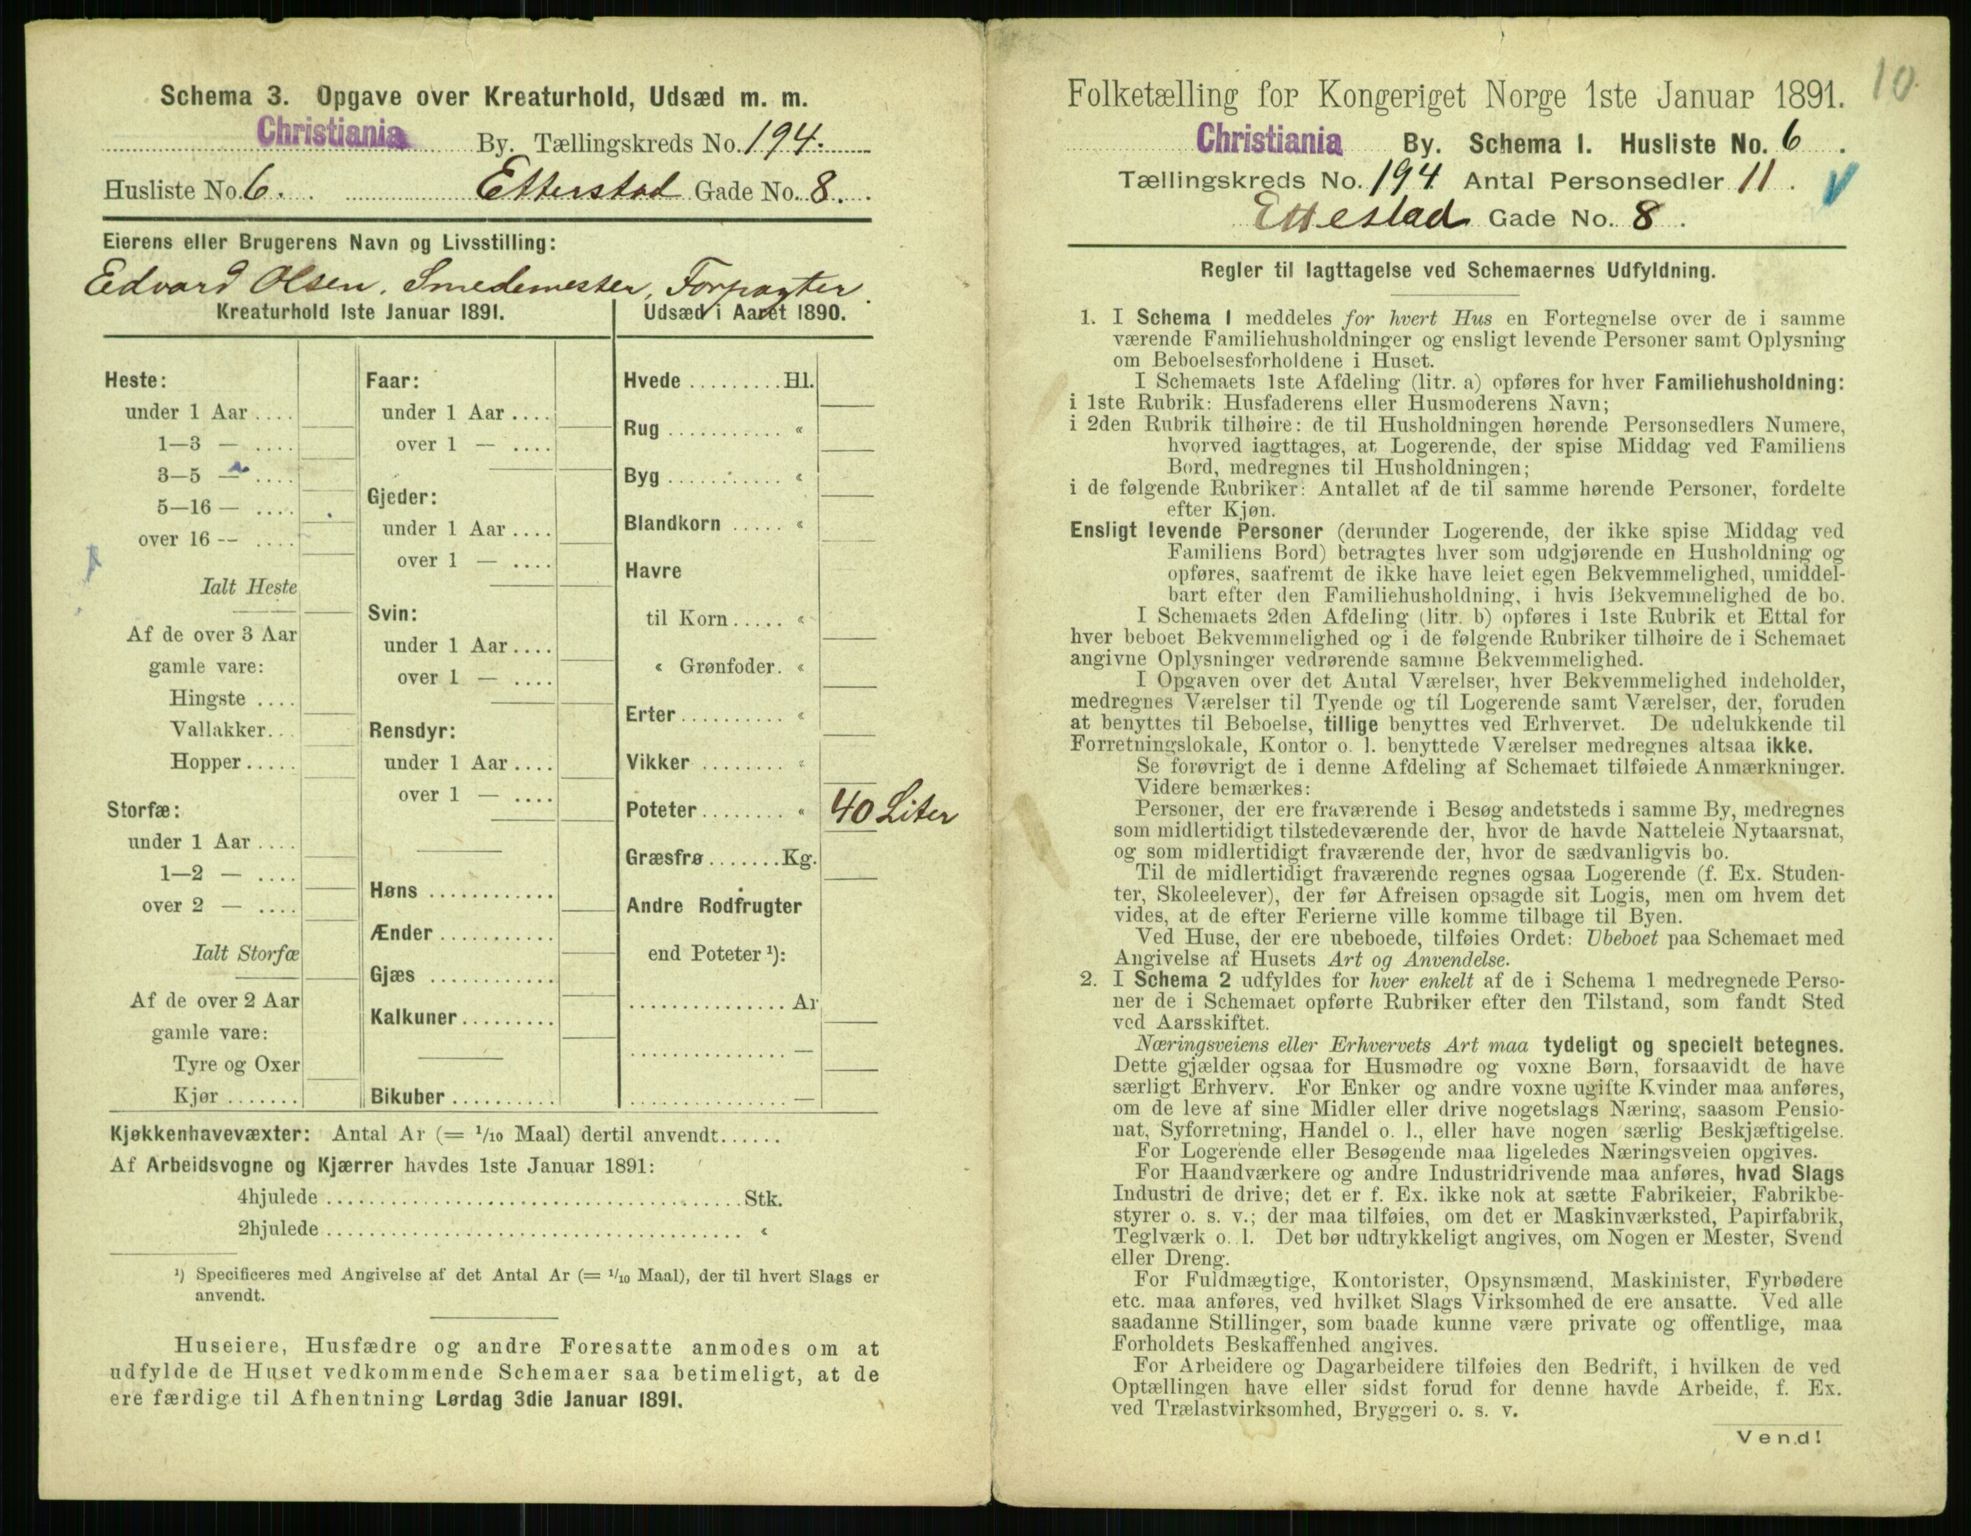 Schema 3. Opgave over Kreaturhold, Udsæd m. m.
Christiania By. Tællingskreds No. 194.
Husliste No. 6. Etterstad Gade No. 8.
Eierens eller Brugerens Navn og Livsstilling:
Edvard Olsen. Smedemester, Forpagter.
Kreaturhold 1ste Januar 1891.
Heste:
under 1 Aar ....
1—3 — ....
3—5 — ....
5—16 — ....
over 16 -- ....
Ialt Heste
Af de over 3 Aar
gamle vare:
Hingste ....
Vallakker...
Hopper.....
Storfæ:
under 1 Aar ....
1—2 — ....
over 2 — ....
Ialt Storfæ
Af de over 2 Aar
gamle vare:
Tyre og Oxer
Kjør .......
Faar:
under 1 Aar ....
over 1 — ....
Gjeder:
under 1 Aar ....
over 1 — ....
Svin:
under 1 Aar ....
over 1 — ....
Rensdyr:
under 1 Aar ....
over 1 — ....
Høns ............
Ænder ...........
Gjæs ............
Kalkuner.........
Bikuber ..........
Udsæd i Aaret 1890.
Hvede ......... Hl.
Rug ........... «
Byg ........... «
Blandkorn ..... «
Havre
til Korn..... «
« Grønfoder. «
Erter .......... «
Vikker ........ «
Poteter........ « 40 Liter
Græsfrø ....... Kg.
Andre Rodfrugter
end Poteter ¹):
............... Ar
............... —
............... —
Kjøkkenhavevæxter: Antal Ar (= 1/10 Maal) dertil anvendt......
Af Arbeidsvogne og Kjærrer havdes 1ste Januar 1891:
4hjulede ....................................... Stk.
2hjulede ....................................... «
¹) Specificeres med Angivelse af det Antal Ar (= 1/10 Maal), der til hvert Slags er
anvendt.
Huseiere, Husfædre og andre Foresatte anmodes om at
udfylde de Huset vedkommende Schemaer saa betimeligt, at de
ere færdige til Afhentning Lørdag 3die Januar 1891.
10.
Folketælling for Kongeriget Norge 1ste Januar 1891.
Christiania By. Schema I. Husliste No. 6.
Tællingskreds No. 194 Antal Personsedler 11.
Ettestad Gade No. 8.
Regler til Iagttagelse ved Schemaernes Udfyldning.
1. I Schema I meddeles for hvert Hus en Fortegnelse over de i samme
værende Familiehusholdninger og ensligt levende Personer samt Oplysning
om Beboelsesforholdene i Huset.
I Schemaets 1ste Afdeling (litr. a) opføres for hver Familiehusholdning:
i 1ste Rubrik: Husfaderens eller Husmoderens Navn;
i 2den Rubrik tilhøire: de til Husholdningen hørende Personsedlers Numere,
hvorved iagttages, at Logerende, der spise Middag ved Familiens
Bord, medregnes til Husholdningen;
i de følgende Rubriker: Antallet af de til samme hørende Personer, fordelte
efter Kjøn.
Ensligt levende Personer (derunder Logerende, der ikke spise Middag ved
Familiens Bord) betragtes hver som udgjørende en Husholdning og
opføres, saafremt de ikke have leiet egen Bekvemmelighed, umiddel-
bart efter den Familiehusholdning, i hvis Bekvemmelighed de bo.
I Schemaets 2den Afdeling (litr. b) opføres i 1ste Rubrik et Ettal for
hver beboet Bekvemmelighed og i de følgende Rubriker tilhøire de i Schemaet
angivne Oplysninger vedrørende samme Bekvemmelighed.
I Opgaven over det Antal Værelser, hver Bekvemmelighed indeholder,
medregnes Værelser til Tyende og til Logerende samt Værelser, der, foruden
at benyttes til Beboelse, tillige benyttes ved Erhvervet. De udelukkende til
Forretningslokale, Kontor o. l. benyttede Værelser medregnes altsaa ikke.
Se forøvrigt de i denne Afdeling af Schemaet tilføiede Anmærkninger.
Videre bemærkes:
Personer, der ere fraværende i Besøg andetsteds i samme By, medregnes
som midlertidigt tilstedeværende der, hvor de havde Natteleie Nytaarsnat,
og som midlertidigt fraværende der, hvor de sædvanligvis bo.
Til de midlertidigt fraværende regnes ogsaa Logerende (f. Ex. Studen-
ter, Skoleelever), der før Afreisen opsagde sit Logis, men om hvem det
vides, at de efter Ferierne ville komme tilbage til Byen.
Ved Huse, der ere ubeboede, tilføies Ordet: Ubeboet paa Schemaet med
Angivelse af Husets Art og Anvendelse.
2. I Schema 2 udfyldes for hver enkelt af de i Schema 1 medregnede Perso-
ner de i Schemaet opførte Rubriker efter den Tilstand, som fandt Sted
ved Aarsskiftet.
Næringsveiens eller Erhvervets Art maa tydeligt og specielt betegnes.
Dette gjælder ogsaa for Husmødre og voxne Børn, forsaavidt de have
særligt Erhverv. For Enker og andre voxne ugifte Kvinder maa anføres,
om de leve af sine Midler eller drive nogetslags Næring, saasom Pensio-
nat, Syforretning, Handel o. l., eller have nogen særlig Beskjæftigelse.
For Logerende eller Besøgende maa ligeledes Næringsveien opgives.
For Haandværkere og andre Industridrivende maa anføres, hvad Slags
Industri de drive; det er f. Ex. ikke nok at sætte Fabrikeier, Fabrikbe-
styrer o. s. v.; der maa tilføies, om det er Maskinværksted, Papirfabrik,
Teglværk o. l. Det bør udtrykkeligt angives, om Nogen er Mester, Svend
eller Dreng.
For Fuldmægtige, Kontorister, Opsynsmænd, Maskinister, Fyrbødere
etc. maa anføres, ved hvilket Slags Virksomhed de ere ansatte. Ved alle
saadanne Stillinger, som baade kunne være private og offentlige, maa
Forholdets Beskaffenhed angives.
For Arbeidere og Dagarbeidere tilføies den Bedrift, i hvilken de ved
Optællingen have eller sidst forud for denne havde Arbeide, f. Ex.
ved Trælastvirksomhed, Bryggeri o. s. v.
Vend!